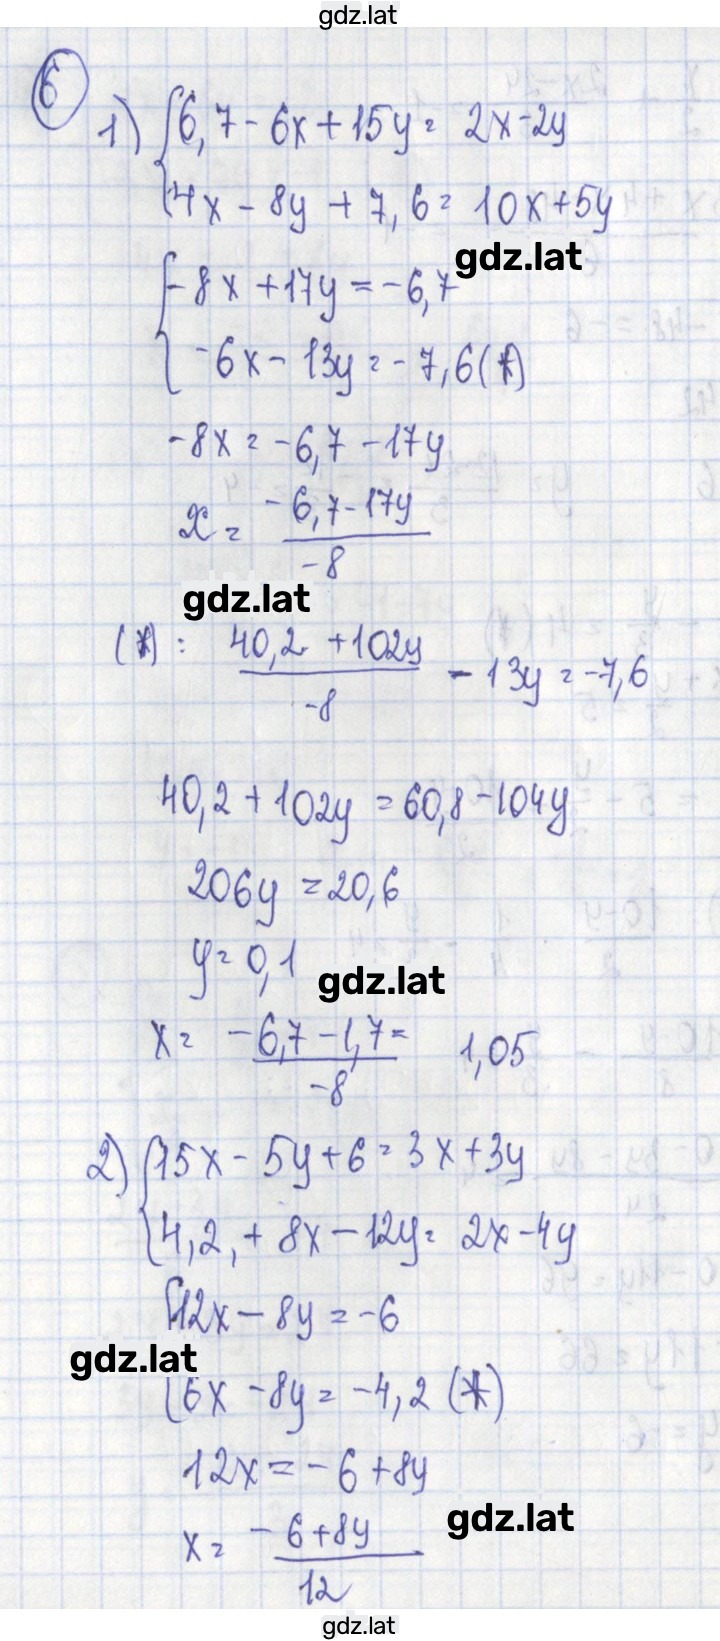 gdz.lat
6
1) { 6,7 - 6x + 15y = 2x - 2y
4x - 8y + 7,6 = 10x + 5y
gdz.lat
{ -8x + 17y = -6,7
-6x - 13y = -7,6 (*)
-8x = -6,7 - 17y
x = \frac{-6,7 - 17y}{-8}
gdz.lat
(*) : \frac{40,2 + 102y}{-8} - 13y = -7,6
40,2 + 102y = 60,8 - 104y
206y = 20,6
y = 0,1
gdz.lat
x = \frac{-6,7 - 1,7}{-8} = 1,05
2) { 15x - 5y + 6 = 3x + 3y
4,2 + 8x - 12y = 2x - 4y
{ 12x - 8y = -6
gdz.lat
6x - 8y = -4,2 (*)
12x = -6 + 8y
gdz.lat
x = \frac{-6 + 8y}{12}
gdz.lat